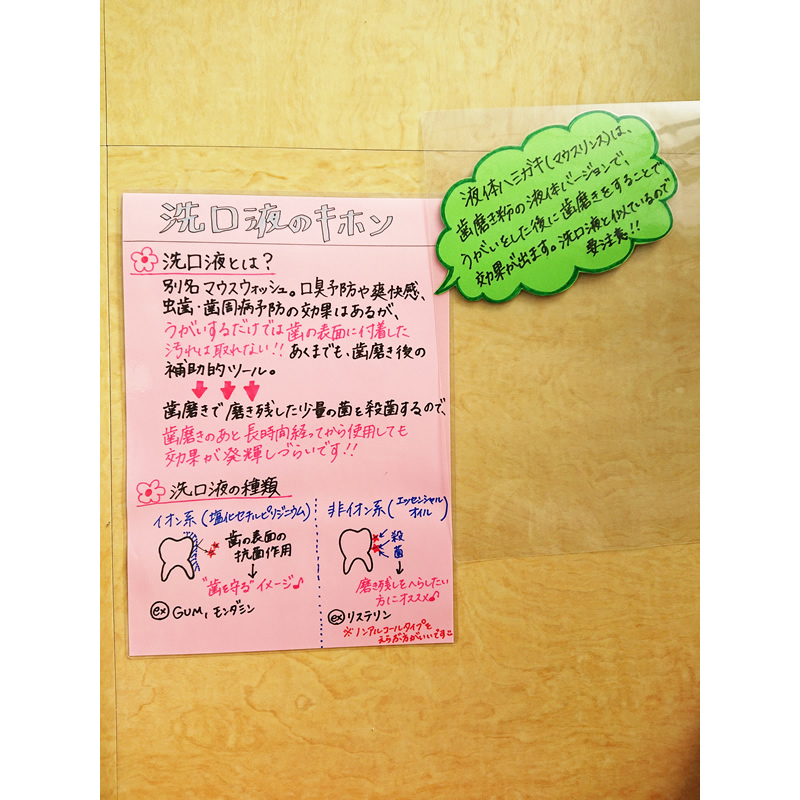 洗口液のキホン
洗口液とは?
別名マウスウォッシュ。口臭予防や爽快感、
虫歯・歯周病予防の効果はあるが、
うがいするだけでは歯の表面に付着した
汚れは取れない!!あくまでも、歯磨き後の
補助的ツール。
歯磨きで磨き残した少量の菌を殺菌するので、
歯磨きのあと長時間経ってから使用しても
効果が発揮しづらいです!!
洗口液の種類
イオン系(塩化セチルピリジニウム)
歯の表面の
抗菌作用
"歯を守る"イメージ♪
ex GUM, モンダミン
非イオン系(エッセンシャル
オイル)
殺
菌
磨き残しをへらしたい
方にオススメ♪
ex リステリン
※ノンアルコールタイプを
えらぶ方がいいです
液体ハミガキ(マウスリンス)は、
歯磨き粉の液体バージョンで、
うがいをした後に歯磨きをすることで
効果が出ます。洗口液と似ているので
要注意!!